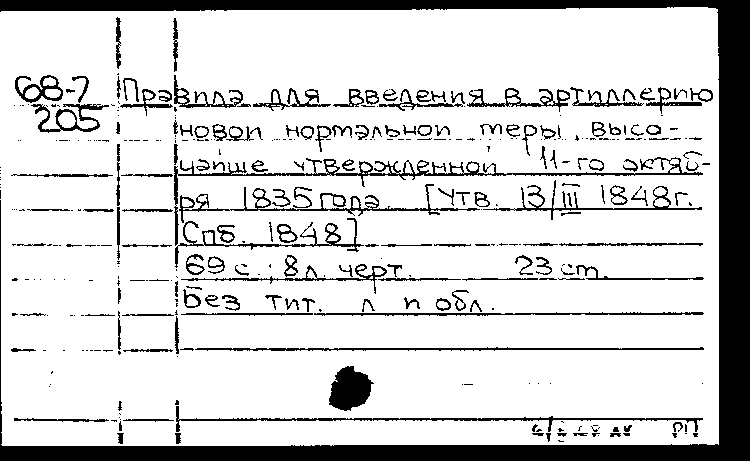 68-7
205
Правила для введения в артиллерию
новой нормальной меры, высо-
чайше утвержденной 11-го октяб-
ря 1835 года. [Утв. 13/III 1848г.
Спб., 1848]
69 с.; 8 л. черт. 23 см.
Без тит. л и обл.
РП